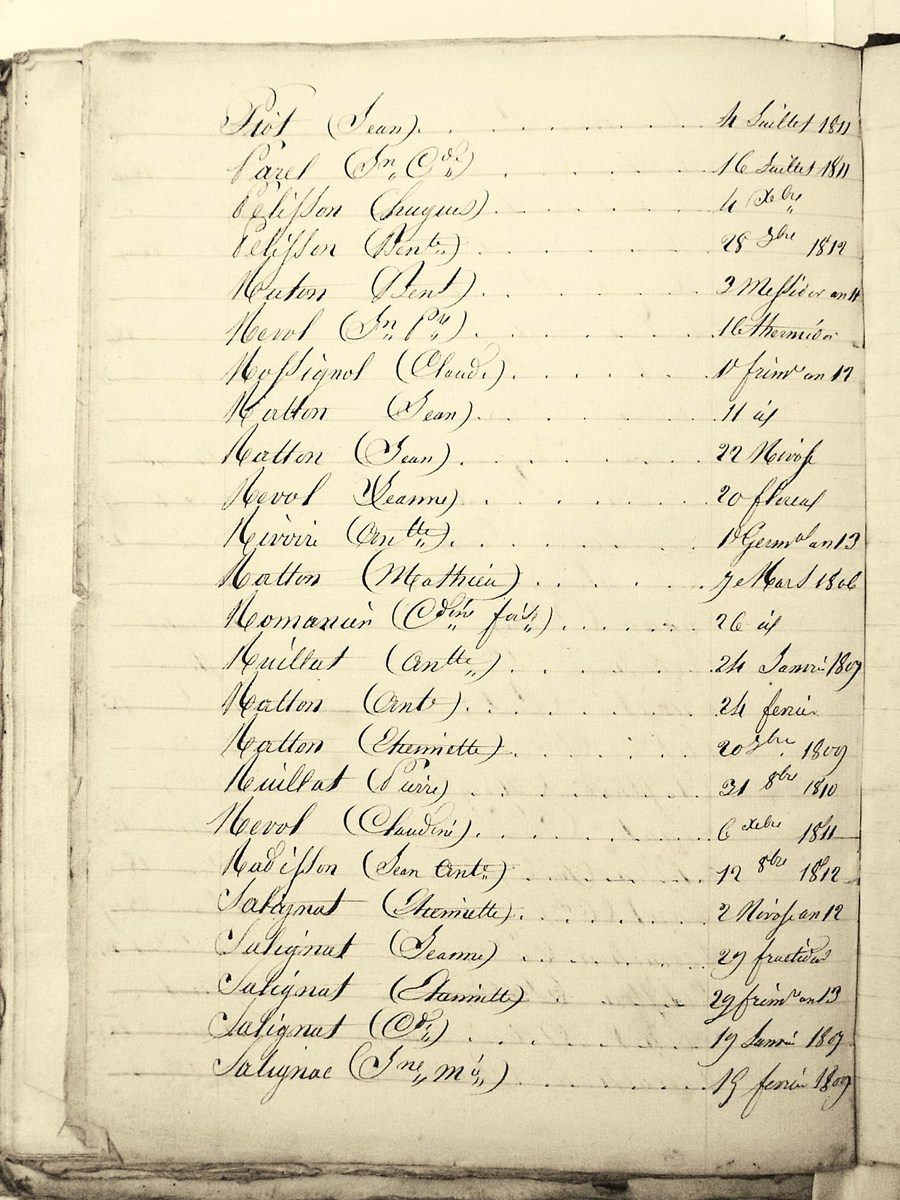 Piot (Jean) 4 Juillet 1811
Parel (Jn Cde) 16 Juillet 1811
Pelisson (hugues) 4 Xbre
Pelisson (Bente) 28 7bre 1812
Raton (Bent) 3 Messidor an 11
Revol (Jn Pre) 16 thermidor
Rossignol (Claude) 18 frimre an 12
Ratton (Jean) 11 id
Ratton (Jean) 22 Nivose
Revol (Jeanne) 20 floreal
Rivoire (Antte) 18 Germal an 13
Ratton (Mathieu) 7 Mars 1806
Romanier (Cdine foise) 26 id
Ruillat (Antte) 24 Janvier 1807
Ratton (Ante) 24 fevrier
Ratton (Etiennette) 20 7bre 1809
Ruillat (Pierre) 31 8bre 1810
Revol (Claudine) 6 Xbre 1811
Radisson (Jean Ante) 12 8bre 1812
Salignat (Etiennette) 2 Nivose an 12
Salignat (Jeanne) 29 fructidor
Salignat (Etiennette) 29 frimre an 13
Salignat (Cde) 19 Janvier 1807
Salignac (Jne Mie) 19 fevrier 1809